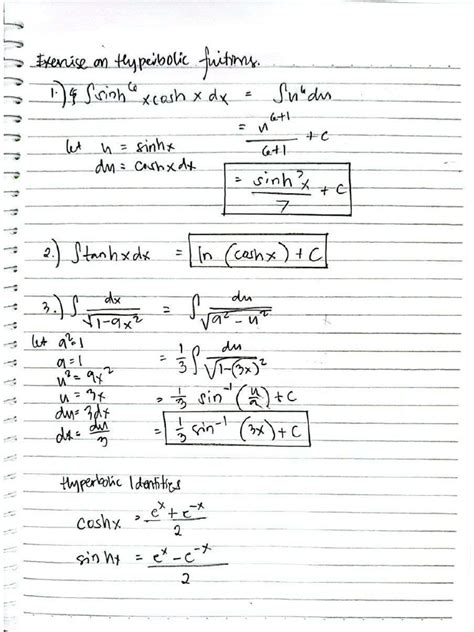 Exercise on Hyperbolic functions.
1.) ∫sinh⁶xcoshxdx = ∫u⁶du
= u⁶⁺¹/6+1 + C
let u = sinhx
du = coshxdx
= sinh⁷x/7 + C
2.) ∫tanhxdx = ln (coshx) + C
3.) ∫ dx/√1-9x² = ∫ du/√a²-u²
let a²=1
a=1
u² = 9x²
u = 3x
du = 3dx
dx = du/3
= 1/3 ∫ du/√1-(3x)²
= 1/3 sin⁻¹ (u/a) + C
= 1/3 sin⁻¹ (3x) + C
Hyperbolic Identities
coshx = eˣ + e⁻ˣ/2
sinhx = eˣ - e⁻ˣ/2